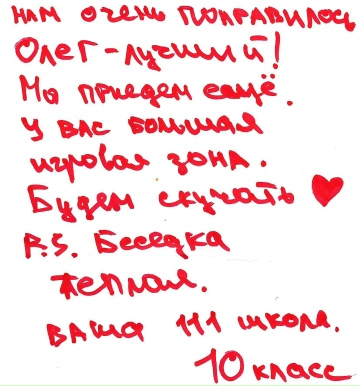 нам очень понравилось
Олег - лучший!
Мы приедем ещё.
У вас большая
игровая зона.
Будем скучать ♥
P.S. Беседка
теплая.
ваша 111 школа.
10 класс